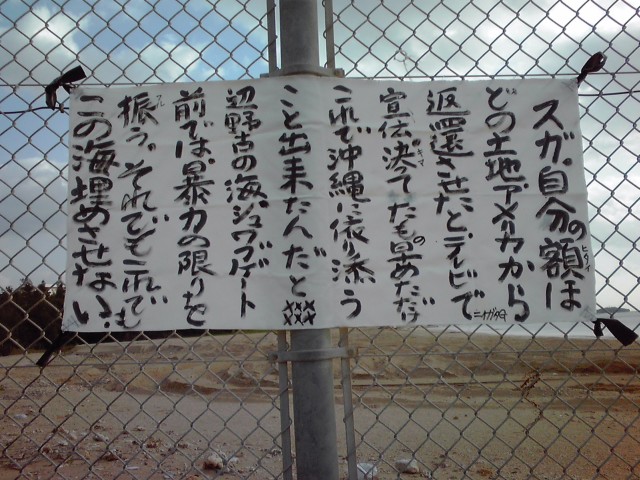 スガ。自分の額は
ヒタイ
どの土地アメリカから
返還させたとテレビで
宣伝決ってたも早めただけ
これで沖縄に依り添う
こと出来たんだと
辺野古の海、シュワブゲート
前では暴力の限りを
振う。それでもこれでも
この海埋めさせない。